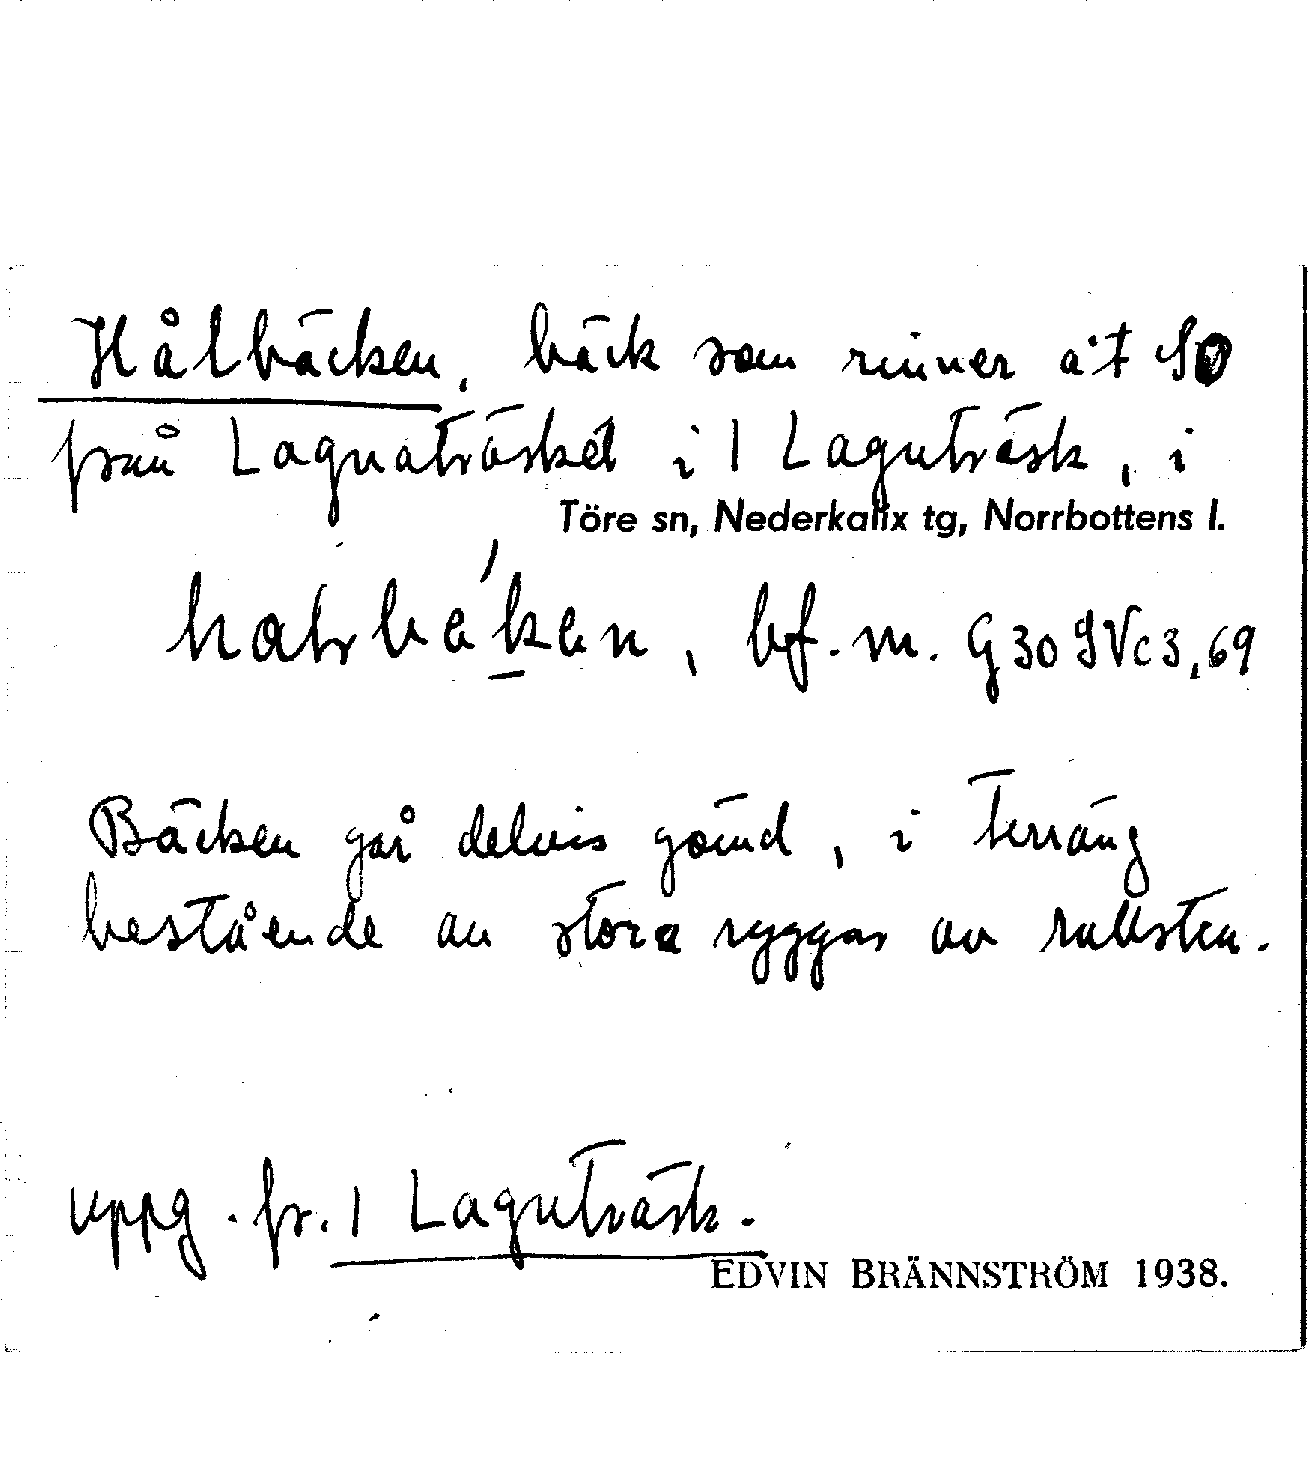 Hålbäcken, bäck som rinner åt SO
från Lagnaträsket i 1 Lagnträsk, i
Töre sn, Nederkalix tg, Norrbottens l.
bf. m. G 30 IV c 3, 69
Bäcken går delvis gömd, i terräng
bestående av stora ryggar av rullsten.
uppg. fr. 1 Lagnträsk.
EDVIN BRÄNNSTRÖM 1938.